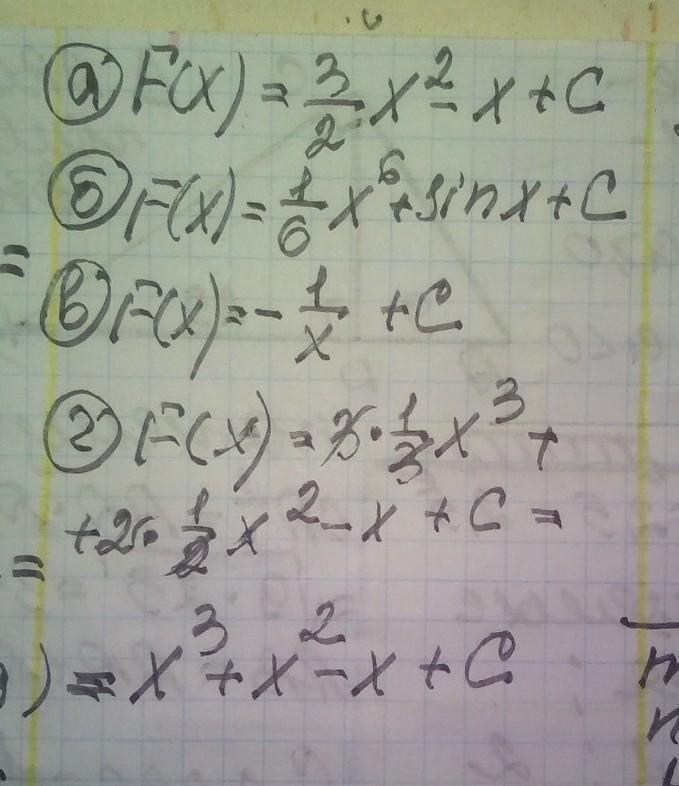 а) F(x) = 3/2 x² - x + C
б) F(x) = 1/6 x⁶ + sin x + C
=
в) F(x) = - 1/x + C
г) F(x) = 3 · 1/3 x³ +
+ 2 · 1/2 x² - x + C =
=
) = x³ + x² - x + C